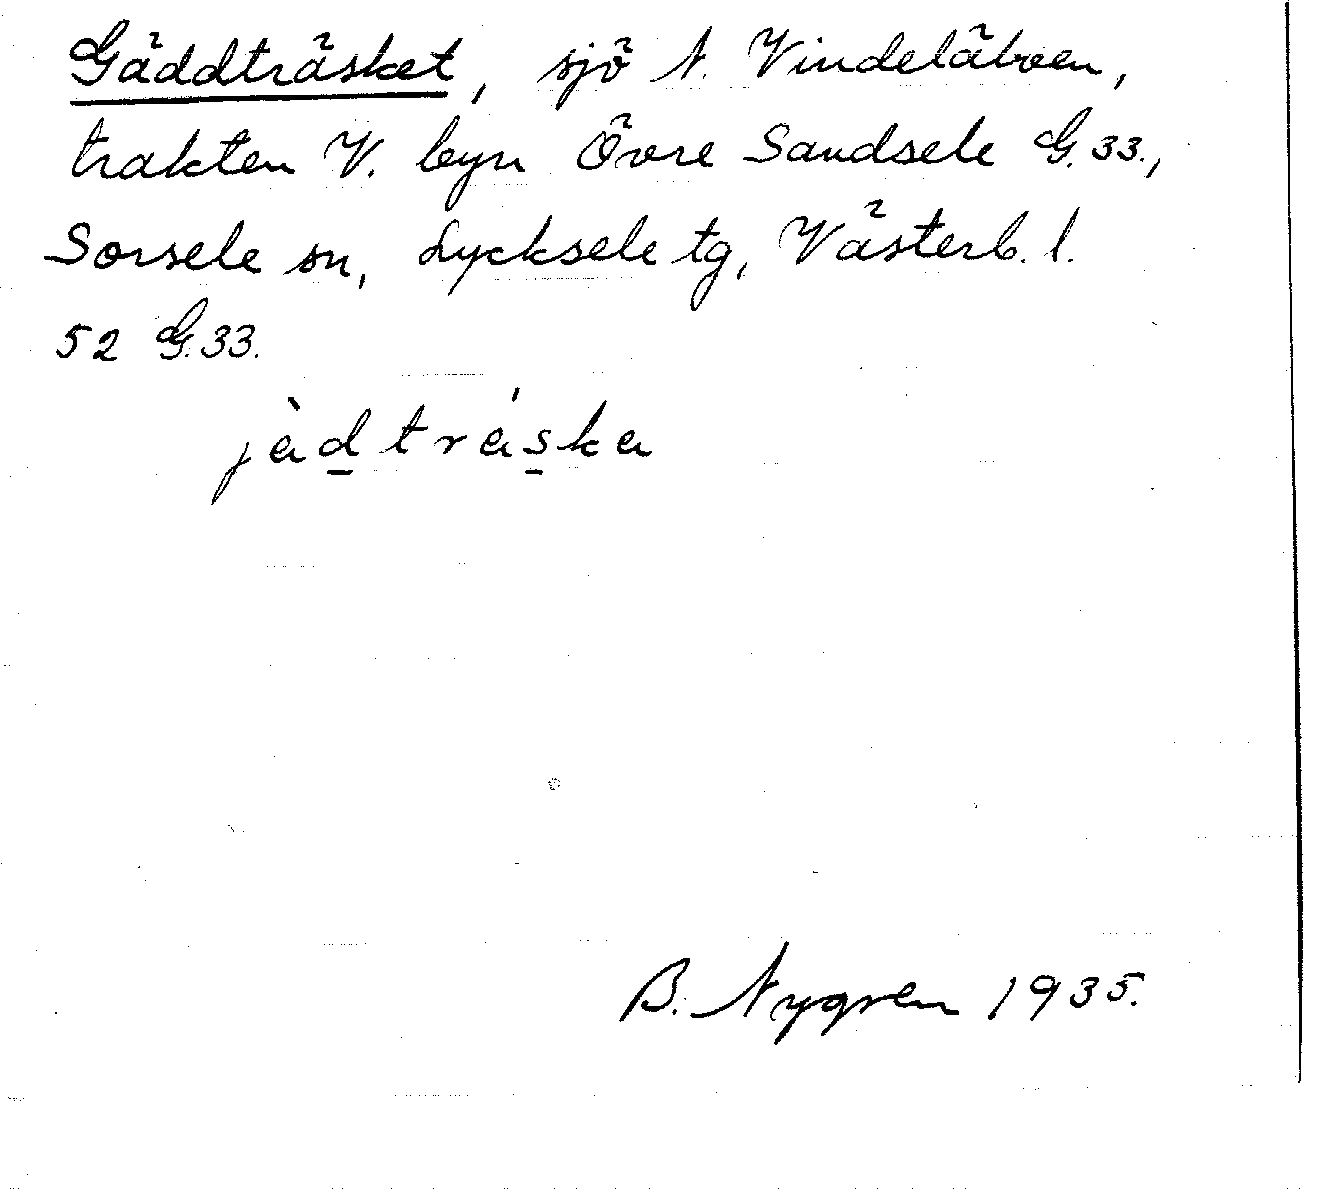 Gäddträsket, sjö N. Vindelälven,
trakten V. byn Övre Sandsele G.33.,
Sorsele sn, Lycksele tg, Västerb. l.
52 G.33.
jàd̲trás̲ka
B. Nygren 1935.